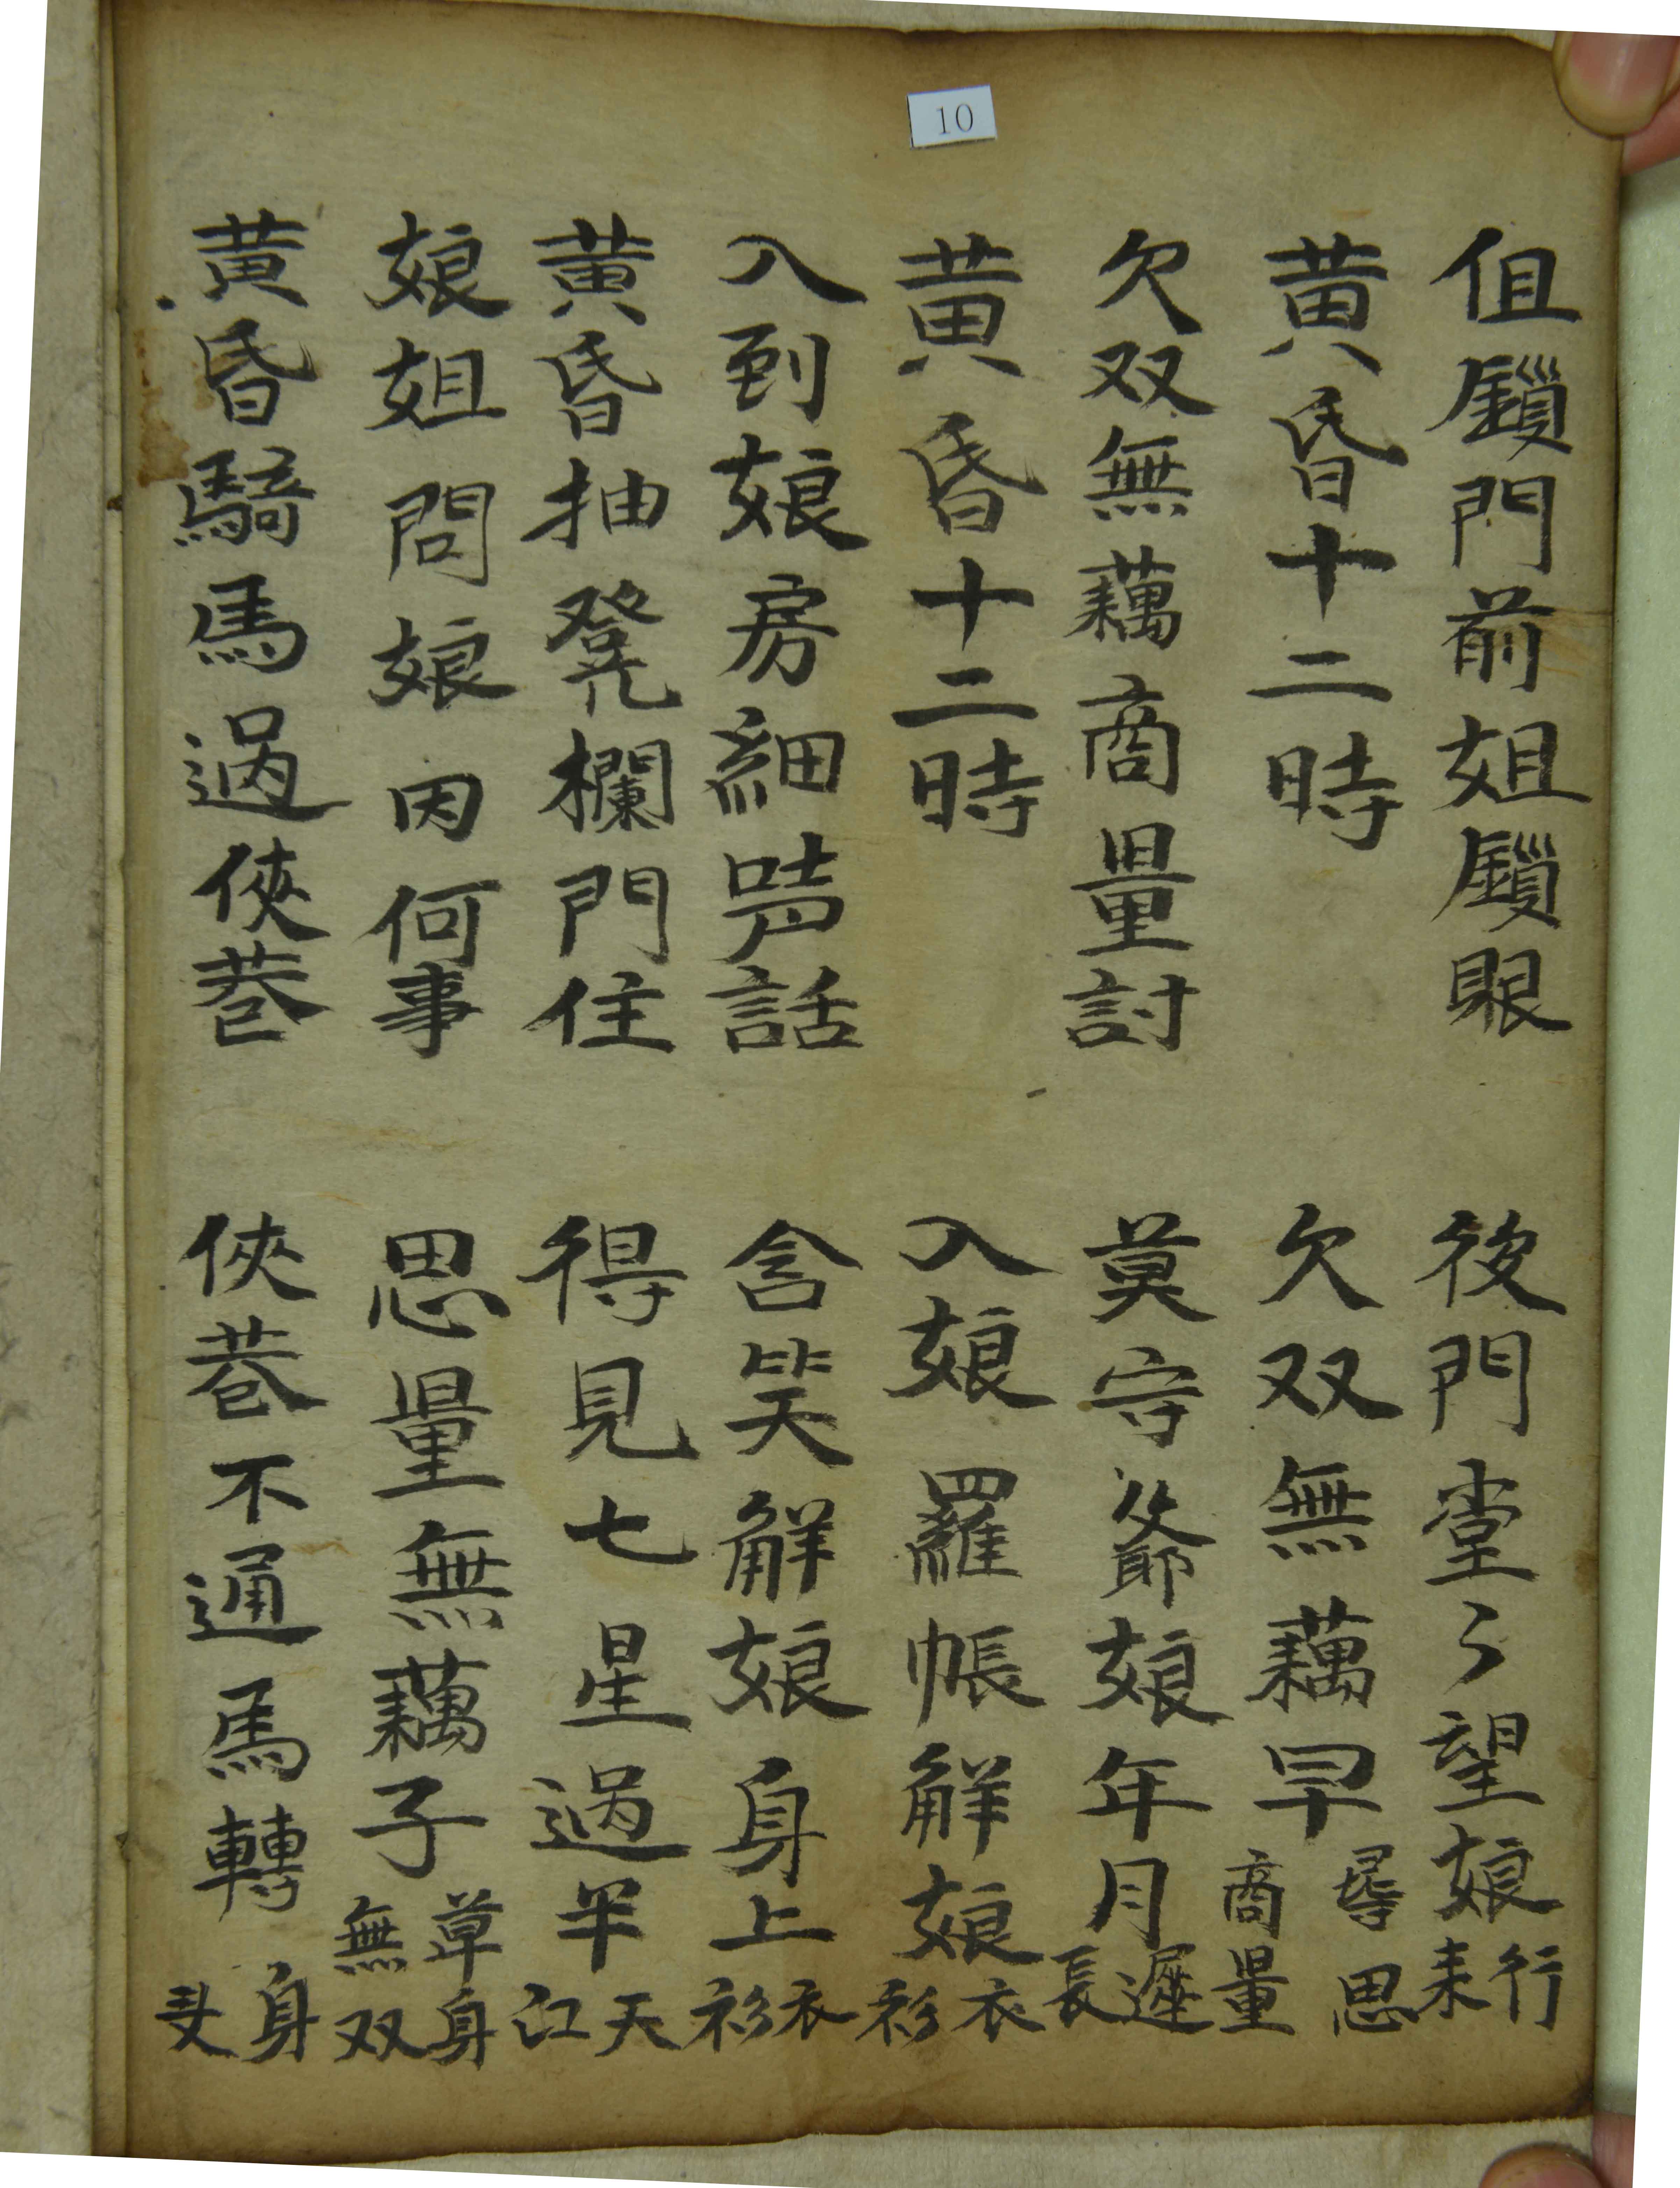 10
伹鎖門前姐鎖眼 後門堂々望娘行耒
黄昏十二時 欠双無藕早尋思商量
欠双無藕商量討 莫守爺娘年月遲長
黄昏十二時 入娘羅帳觧娘衣衫
入到娘房細話 含笑觧娘身上衣衫
黄昏抽凳欄門住 得見七星過半天江
娘姐問娘因何事 思量無藕子草身無双
黄昏騎馬過俠巷 俠巷不通馬轉身